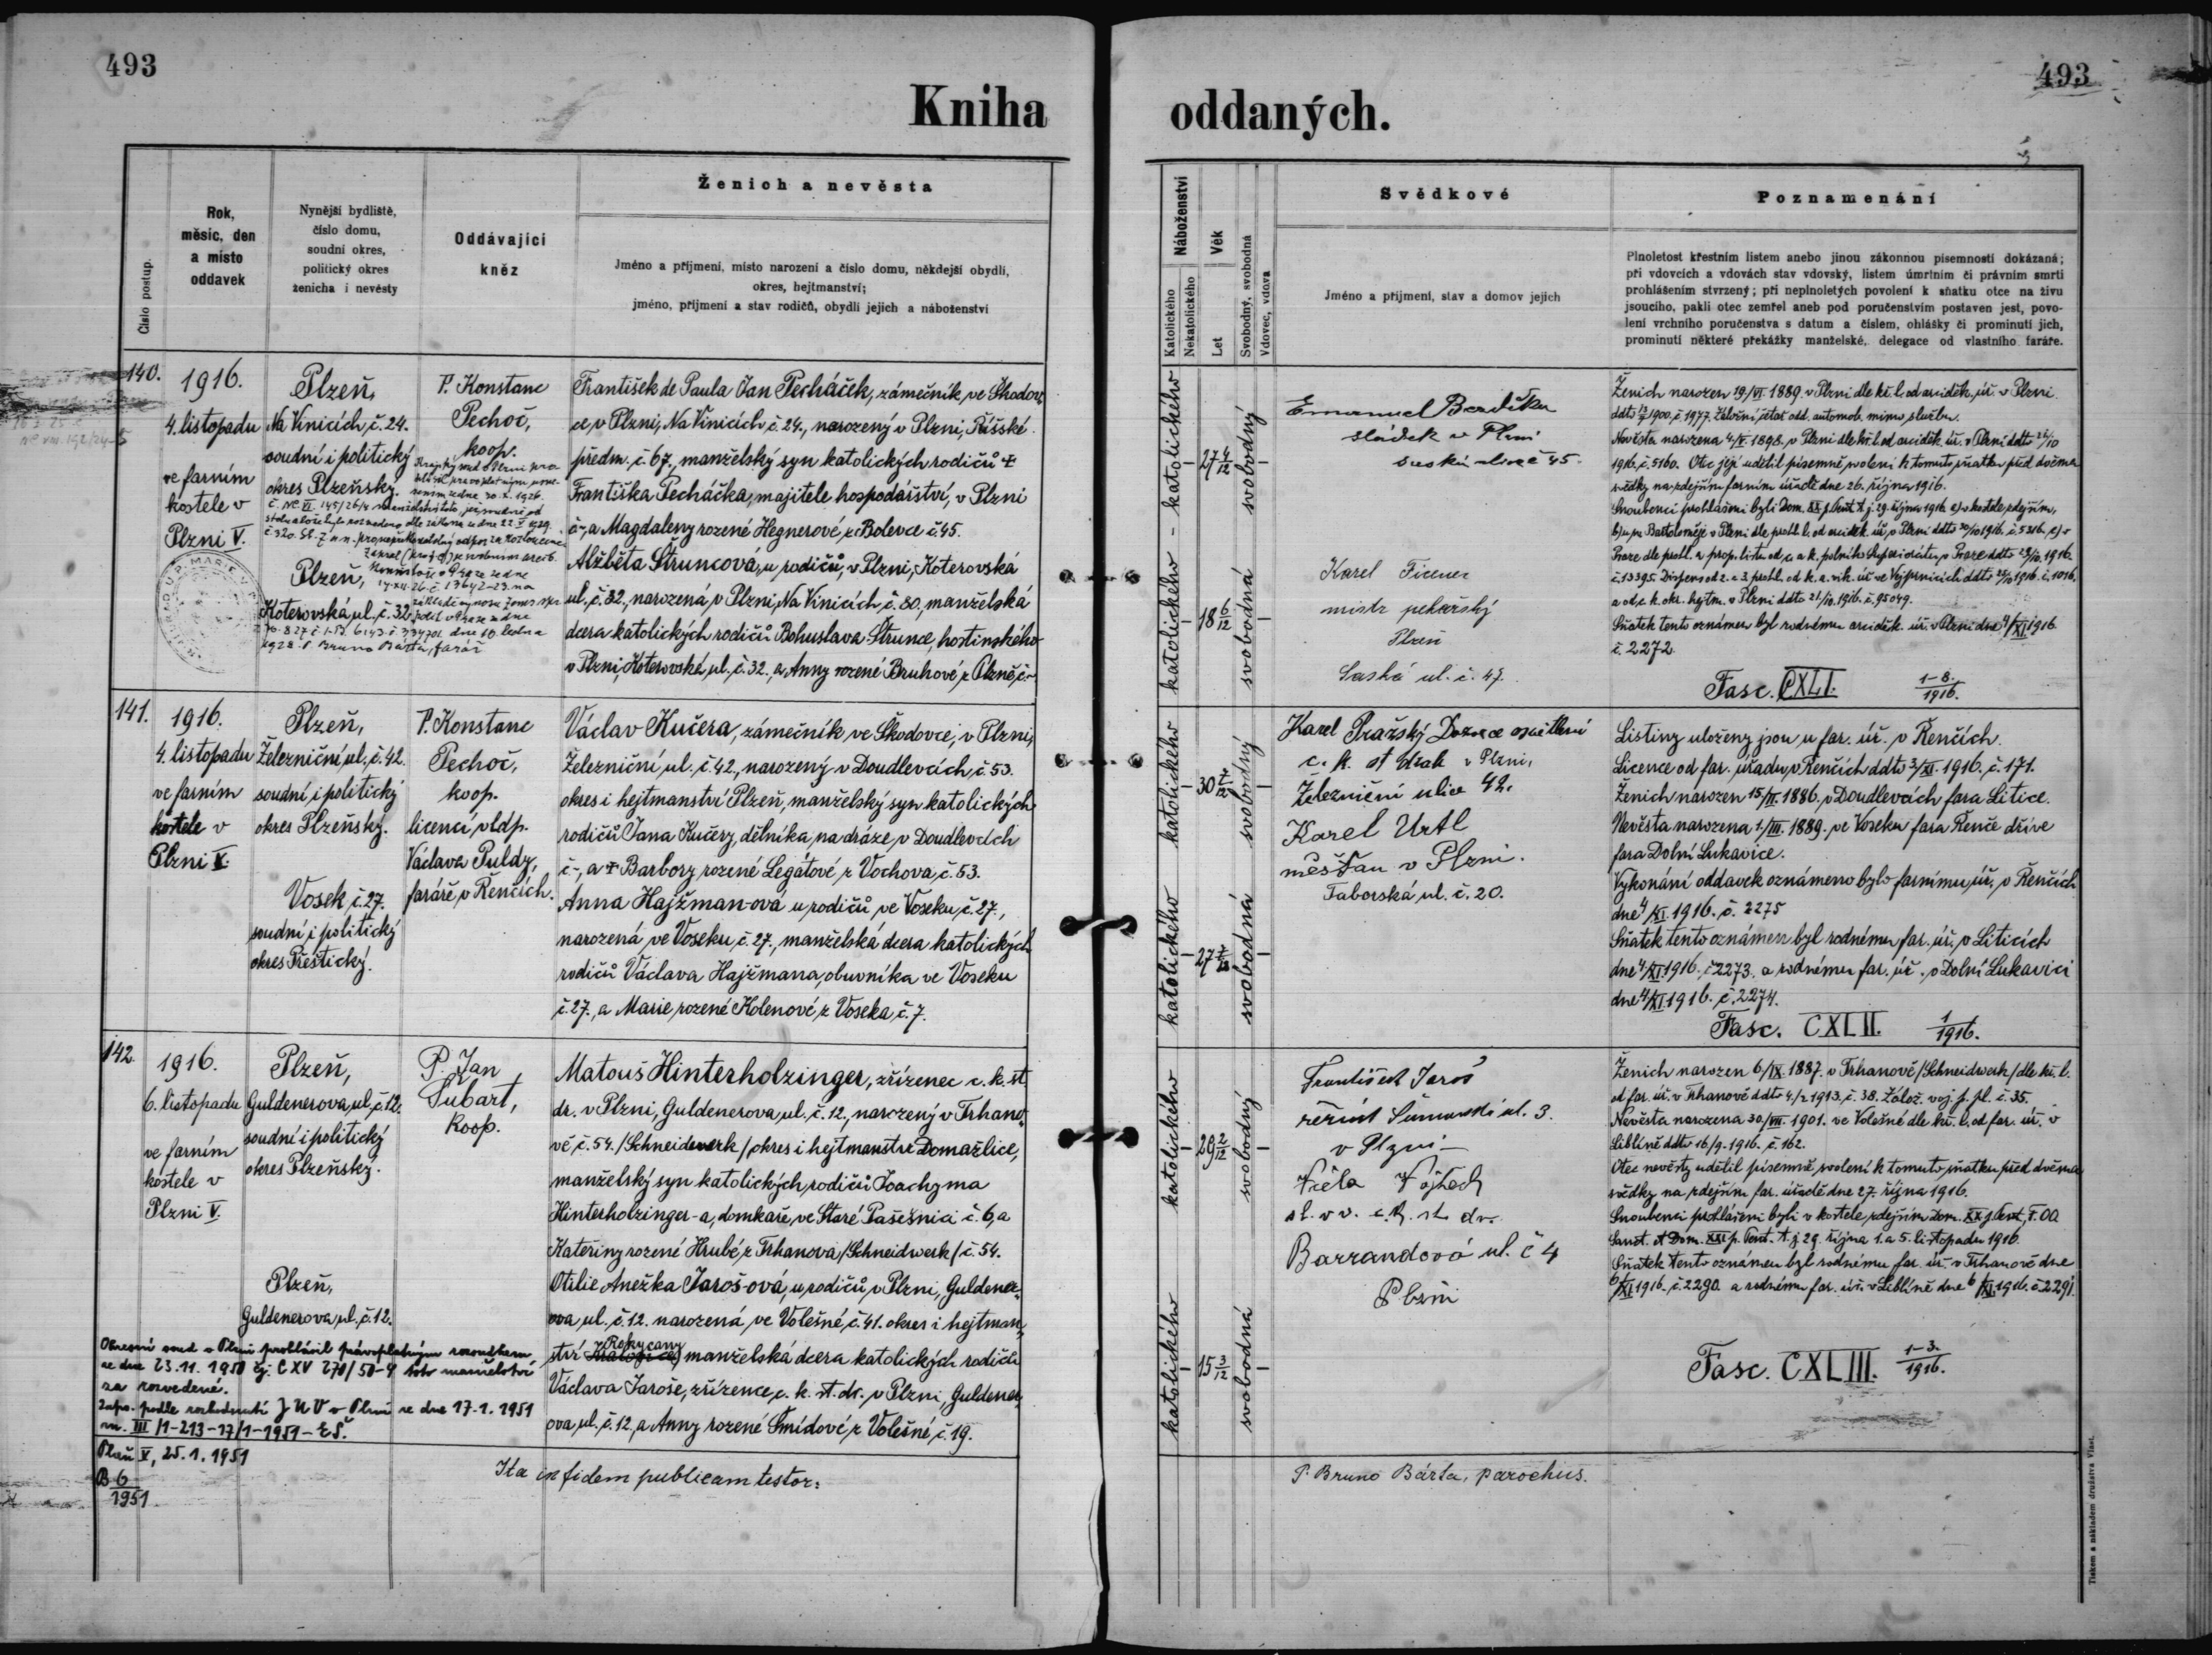 493
493
Kniha
oddaných.
Číslo postup.
Rok,
měsíc, den
a místo
oddavek
Nynější bydliště,
číslo domu,
soudní okres,
politický okres
ženicha i nevěsty
Oddávající
kněz
Ženich a nevěsta
Jméno a příjmení, místo narození a číslo domu, někdejší obydlí,
okres, hejtmanství;
jméno, příjmení a stav rodičů, obydlí jejich a náboženství
Náboženství
Katolického
Nekatolického
Věk
Let
Svobodný, svobodná
Vdovec, vdova
Svědkové
Jméno a příjmení, stav a domov jejich
Poznamenání
Plnoletost křestním listem anebo jinou zákonnou písemností dokázaná;
při vdovcích a vdovách stav vdovský, listem úmrtním či právním smrti
prohlášením stvrzený; při neplnoletých povolení k sňatku otce na živu
jsoucího, pakli otec zemřel aneb pod poručenstvím postaven jest, povo-
lení vrchního poručenstva s datum a číslem, ohlášky či prominutí jich,
prominutí některé překážky manželské, delegace od vlastního faráře.
140.
1916.
4. listopadu
ve farním
kostele v
Plzni V.
Plzeň,
Na Vinicích, č. 24.
soudní i politický
okres Plzeňský.
Plzeň,
Koterovská ul. č. 32.
1928. P. Bruno Bárta, farář
P. Konstanc
Pechoč,
koop.
František de Paula Jan Pecháček, zámečník ve Škodov-
ce v Plzni, Na Vinicích č. 24., narozený v Plzni, Říšské
předm. č. 67., manželský syn katolických rodičů +
Františka Pecháčka, majitele hospodářství, v Plzni
č.-, a Magdaleny rozené Hegnerové z Bolevce č. 45.
Alžběta Štruncová, u rodičů, v Plzni, Koterovská
ul. č. 32., narozená v Plzni, Na Vinicích, č. 80., manželská
dcera katolických rodičů Bohuslava Štrunce, hostinského
v Plzni, Koterovská ul. č. 32., a Anny rozené Bruhové z Plzně, č.-
katolického - katolického
27 4/12
18 6/12
svobodný
svobodná
Emanuel
sládek v Plzni
č 45.
Karel Ficener
mistr pekařský
Plzeň
Saská ul. č. 47.
Ženich narozen 19/VI. 1889. v Plzni dle kř. l. od arciděk. úř. v Plzni
1900. č. 1977. Záložní četař odd. automob. mimo službu.
Nevěsta narozena 4./V. 1898. v Plzni dle kř. l. od arciděk. úř. v Plzni ddto
1916. č. 5160. Otec její udělil písemně svolení k tomuto sňatku před dvěma
svědky na zdejším farním úřadě dne 26. října 1916.
Snoubenci prohlášeni byli Dom. XX. p. Pent. t. j. 29. října 1916 a) v kostele zdejším,
b) u sv. Bartoloměje v Plzni dle prohl. l. od arciděk. úř. v Plzni ddto 30/10 1916. č. 5316. c) v
a od c. k. okr. hejtm. v Plzni ddto 21/10. 1916. č. 95049.
Sňatek tento oznámen byl rodnému arciděk. úř. v Plzni dne 4/XI 1916
č. 2272.
Fasc. CXLI. 1-8./1916.
141.
1916.
4. listopadu
ve farním
kostele v
Plzni V.
Plzeň,
Železniční ul. č. 42.
soudní i politický
okres Plzeňský.
Vosek č. 27.
soudní i politický
okres Přeštický.
P. Konstanc
Pechoč,
koop.
licencí vldp.
Václava Puldy,
faráře v Řenčích.
Václav Kučera, zámečník ve Škodovce, v Plzni,
Železniční ul. č. 42., narozený v Doudlevcích, č. 53.
okres i hejtmanství Plzeň, manželský syn katolických
rodičů Jana Kučery, dělníka na dráze, v Doudlevcích
č.-, a + Barbory rozené Legátové z Vochova, č. 53.
Anna Hajžman-ová u rodičů ve Voseku, č. 27.,
narozená ve Voseku, č. 27., manželská dcera katolických
rodičů Václava Hajžmana, obuvníka ve Voseku
č. 27., a Marie rozené Kolenové z Voseka, č. 7.
katolického katolického
27
30
svobodný
svobodná
Karel Pražský Dozorce osvětlení
c. k. st drah v Plzni,
Železniční ulice 42.
Karel Urtl
měšťan v Plzni.
Taborská ul. č. 20.
Listiny uloženy jsou u far. úř. v Řenčích.
Licence od far. úřadu v Řenčích ddto 3/XI. 1916. č. 171.
Ženich narozen 15/IV. 1886. v Doudlevcích fara Litice.
Nevěsta narozena 1./III. 1889. ve Voseku fara Řenče dříve
fara Dolní Lukavice.
Vykonání oddavek oznámeno bylo farnímu úř. v Řenčích
dne 4/XI. 1916. č. 2275
Sňatek tento oznámen byl rodnému far. úř. v Liticích
dne 4/XI 1916. č. 2273. a rodnému far. úř. v Dolní Lukavici
dne 4/XI 1916. č. 2274.
Fasc. CXLII. 1/1916.
142.
1916.
6. listopadu
ve farním
kostele v
Plzni V.
Plzeň,
Guldenerova ul. č. 12.
soudní i politický
okres Plzeňský.
Plzeň,
Guldenerova ul. č. 12.
P. Jan
Šubart,
koop.
Matouš Hinterholzinger, zřízenec c. k. st.
dr. v Plzni, Guldenerova ul. č. 12., narozený v Trhano-
vě č. 54. /Schneidewerk/ okres i hejtmanství Domažlice,
manželský syn katolických rodičů Joachyma
Hinterholzinger-a, domkaře, ve Staré Pasečnici č. 6, a
Kateřiny rozené Hrubé, z Trhanova, /Schneidwerk/ č. 54.
Otilie Anežka Jaroš-ová, u rodičů v Plzni, Guldener-
ova ul. č. 12. narozená ve Volešné, č. 41. okres i hejtman-
ství Rokycany manželská dcera katolických rodičů
Václava Jaroše, zřízence c. k. st. dr. v Plzni, Guldener-
ova ul. č. 12, a Anny rozené Šmídové z Volešné, č. 19.
katolického
katolického
29 2/12
15 3/12
svobodný
svobodná
František Jaroš
ul. 3.
v Plzni
c. k. st dr.
Barrandová ul. č 4
Plzni
Ženich narozen 6/IX. 1887. v Trhanově /Schneidwerk/ dle kř. l.
od far. úř. v Trhanově ddto 4/2 1913. č. 38. Zálož. voj. p. pl. č. 35.
Nevěsta narozena 30/VII. 1901. ve Volešné dle kř. l. od far. úř. v
Liblíně ddto 16/9. 1916. č. 162.
Otec nevěsty udělil písemně svolení k tomuto sňatku před dvěma
svědky na zdejším far. úřadě dne 27. října 1916.
Snoubenci prohlášeni byli v kostele zdejším Dom. XX. p. Pent., F. OO
Sanct. et Dom. XXI p. Pent. t. j. 29. října 1. a 5. listopadu 1916.
Sňatek tento oznámen byl rodnému far. úř. v Trhanově dne
6/XI 1916. č. 2290. a rodnému far. úř. v Liblíně dne 6/XI. 1916. č. 2291.
Fasc. CXLIII. 1-3./1916.
Okresní soud v Plzni prohlásil právoplatným rozsudkem
ze dne 23.11.1950 čj. C XV 270/50-4 toto manželství
za rozvedené.
Zaps. podle rozhodnutí JNV v Plzni ze dne 17.1.1951
zn. III/1-213-17/1-1951-EŠ.
Plzeň V, 25.1.1951
B 6/1951
Ita in fidem publicam testor:
P. Bruno Bárta, parochus.
Tiskem a nákladem družstva Vlast.